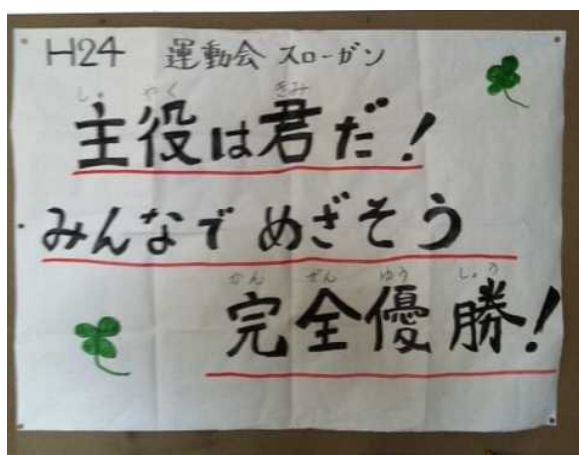 H24 運動会 スローガン
しゅ やく きみ
主役は君だ!
みんなで めざそう
かん ぜん ゆう しょう
完全優勝!